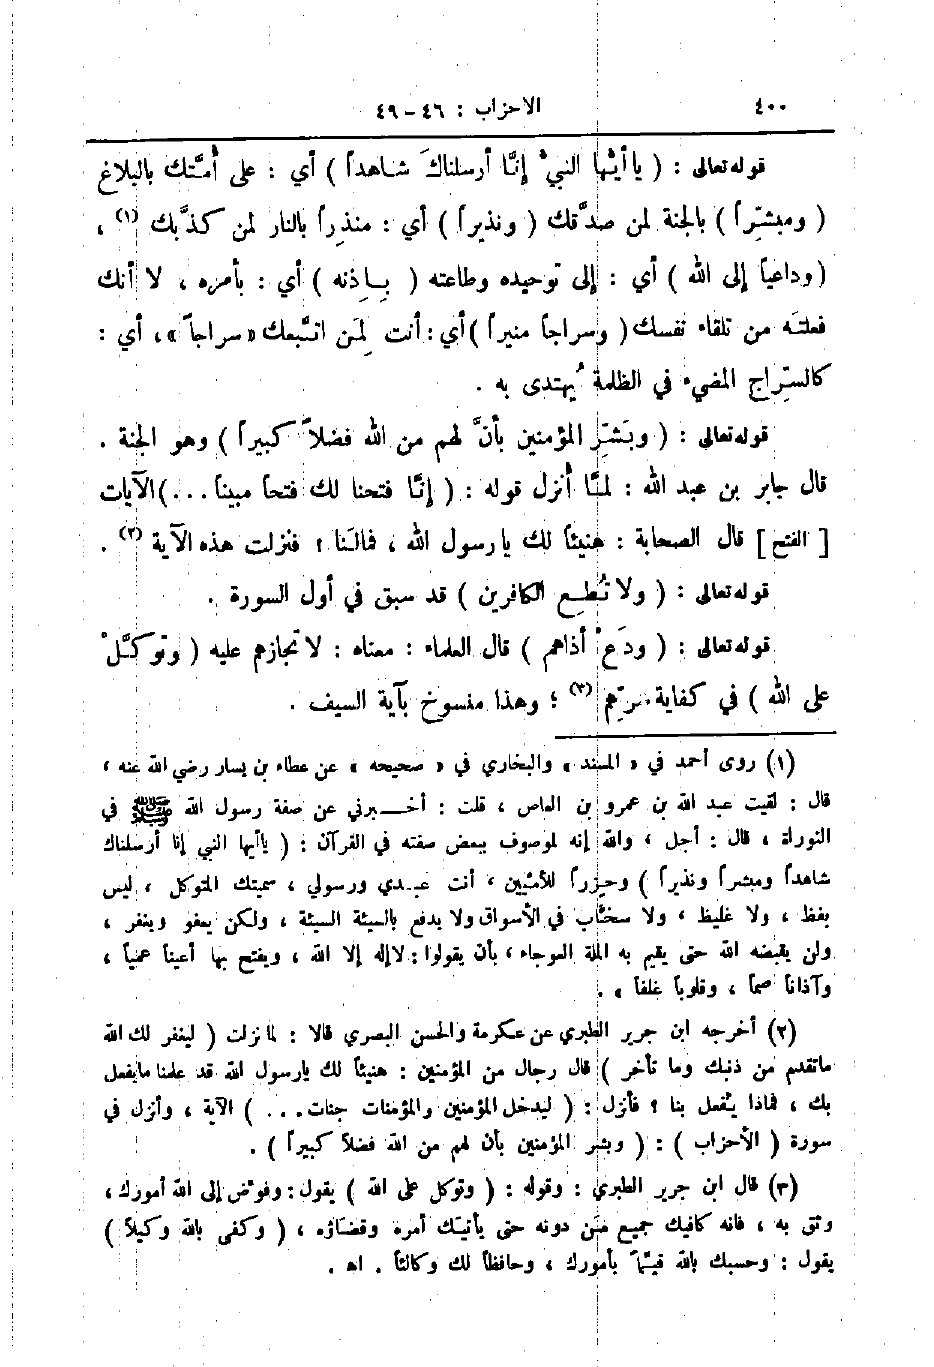 ٤٠٠ الاحزاب : ٤٦ - ٤٩
قوله تعالى : ( يا أيُّها النبيُّ إِنَّا أرسلناكَ شاهداً ) أي : على أُمَّتك بالبلاغ
( ومبشِّراً ) بالجنة لمن صدَّقك ( ونذيراً ) أي : منذِراً بالنار لمن كذَّبك (١) ،
( وداعياً إلى الله ) أي : إلى توحيده وطاعته ( بإِذنه ) أي : بأمره ، لا أنك
فعلتَه من تلقاء نفسك ( وسراجاً منيراً ) أي : أنت لِمَن اتَّبعك « سراجاً » ، أي :
كالسِّراج المضيء في الظلمة يُهتدى به .
قوله تعالى : ( وبَشِّرِ المؤمنين بأنَّ لهم من الله فضلاً كبيراً ) وهو الجنة .
قال جابر بن عبد الله : لمَّا أُنزل قوله : ( إِنَّا فتحنا لك فتحاً مبيناً ... ) الآيات
[ الفتح ] قال الصحابة : هنيئاً لك يا رسول الله ، فمالَنا ؟ فنزلت هذه الآية (٢) .
قوله تعالى : ( ولا تُطِعِ الكافرين ) قد سبق في أول السورة .
قوله تعالى : ( ودَعْ أذاهم ) قال العلماء : معناه : لا تجازهم عليه ( وتوكَّلْ
على الله ) في كفاية شرِّهم (٣) ؛ وهذا منسوخ بآية السيف .
(١) روى أحمد في « المسند » والبخاري في « صحيحه » عن عطاء بن يسار رضي الله عنه ،
قال : لقيت عبد الله بن عمرو بن العاص ، قلت : أخبرني عن صفة رسول الله ﷺ في
التوراة ، قال : أجل ، والله إنه لموصوف ببعض صفته في القرآن : ( يا أيها النبي إنا أرسلناك
شاهداً ومبشراً ونذيراً ) وحِرزاً للأمِّيين ، أنت عبدي ورسولي ، سميتك المتوكل ، ليس
بفظ ، ولا غليظ ، ولا سخَّاب في الأسواق ولا يدفع بالسيئة السيئة ، ولكن يعفو ويغفر ،
ولن يقبضه الله حتى يقيم به الملة العوجاء ، بأن يقولوا : لا إله إلا الله ، ويفتح بها أعيناً عمياً ،
وآذاناً صماً ، وقلوباً غلفاً » .
(٢) أخرجه ابن جرير الطبري عن عكرمة والحسن البصري قالا : لما نزلت ( ليغفر لك الله
ما تقدم من ذنبك وما تأخر ) قال رجال من المؤمنين : هنيئاً لك يا رسول الله قد علمنا ما يفعل
بك ، فماذا يُفعل بنا ؟ فأنزل : ( ليدخل المؤمنين والمؤمنات جنات ... ) الآية ، وأنزل في
سورة ( الأحزاب ) : ( وبشر المؤمنين بأن لهم من الله فضلاً كبيراً ) .
(٣) قال ابن جرير الطبري : وقوله : ( وتوكل على الله ) يقول : وفوِّض إلى الله أمورك ،
وثق به ، فانه كافيك جميع مَن دونه حتى يأتيك أمره وقضاؤه ، ( وكفى بالله وكيلاً )
يقول : وحسبك بالله قيِّماً بأمورك ، وحافظاً لك وكالئاً . اه .